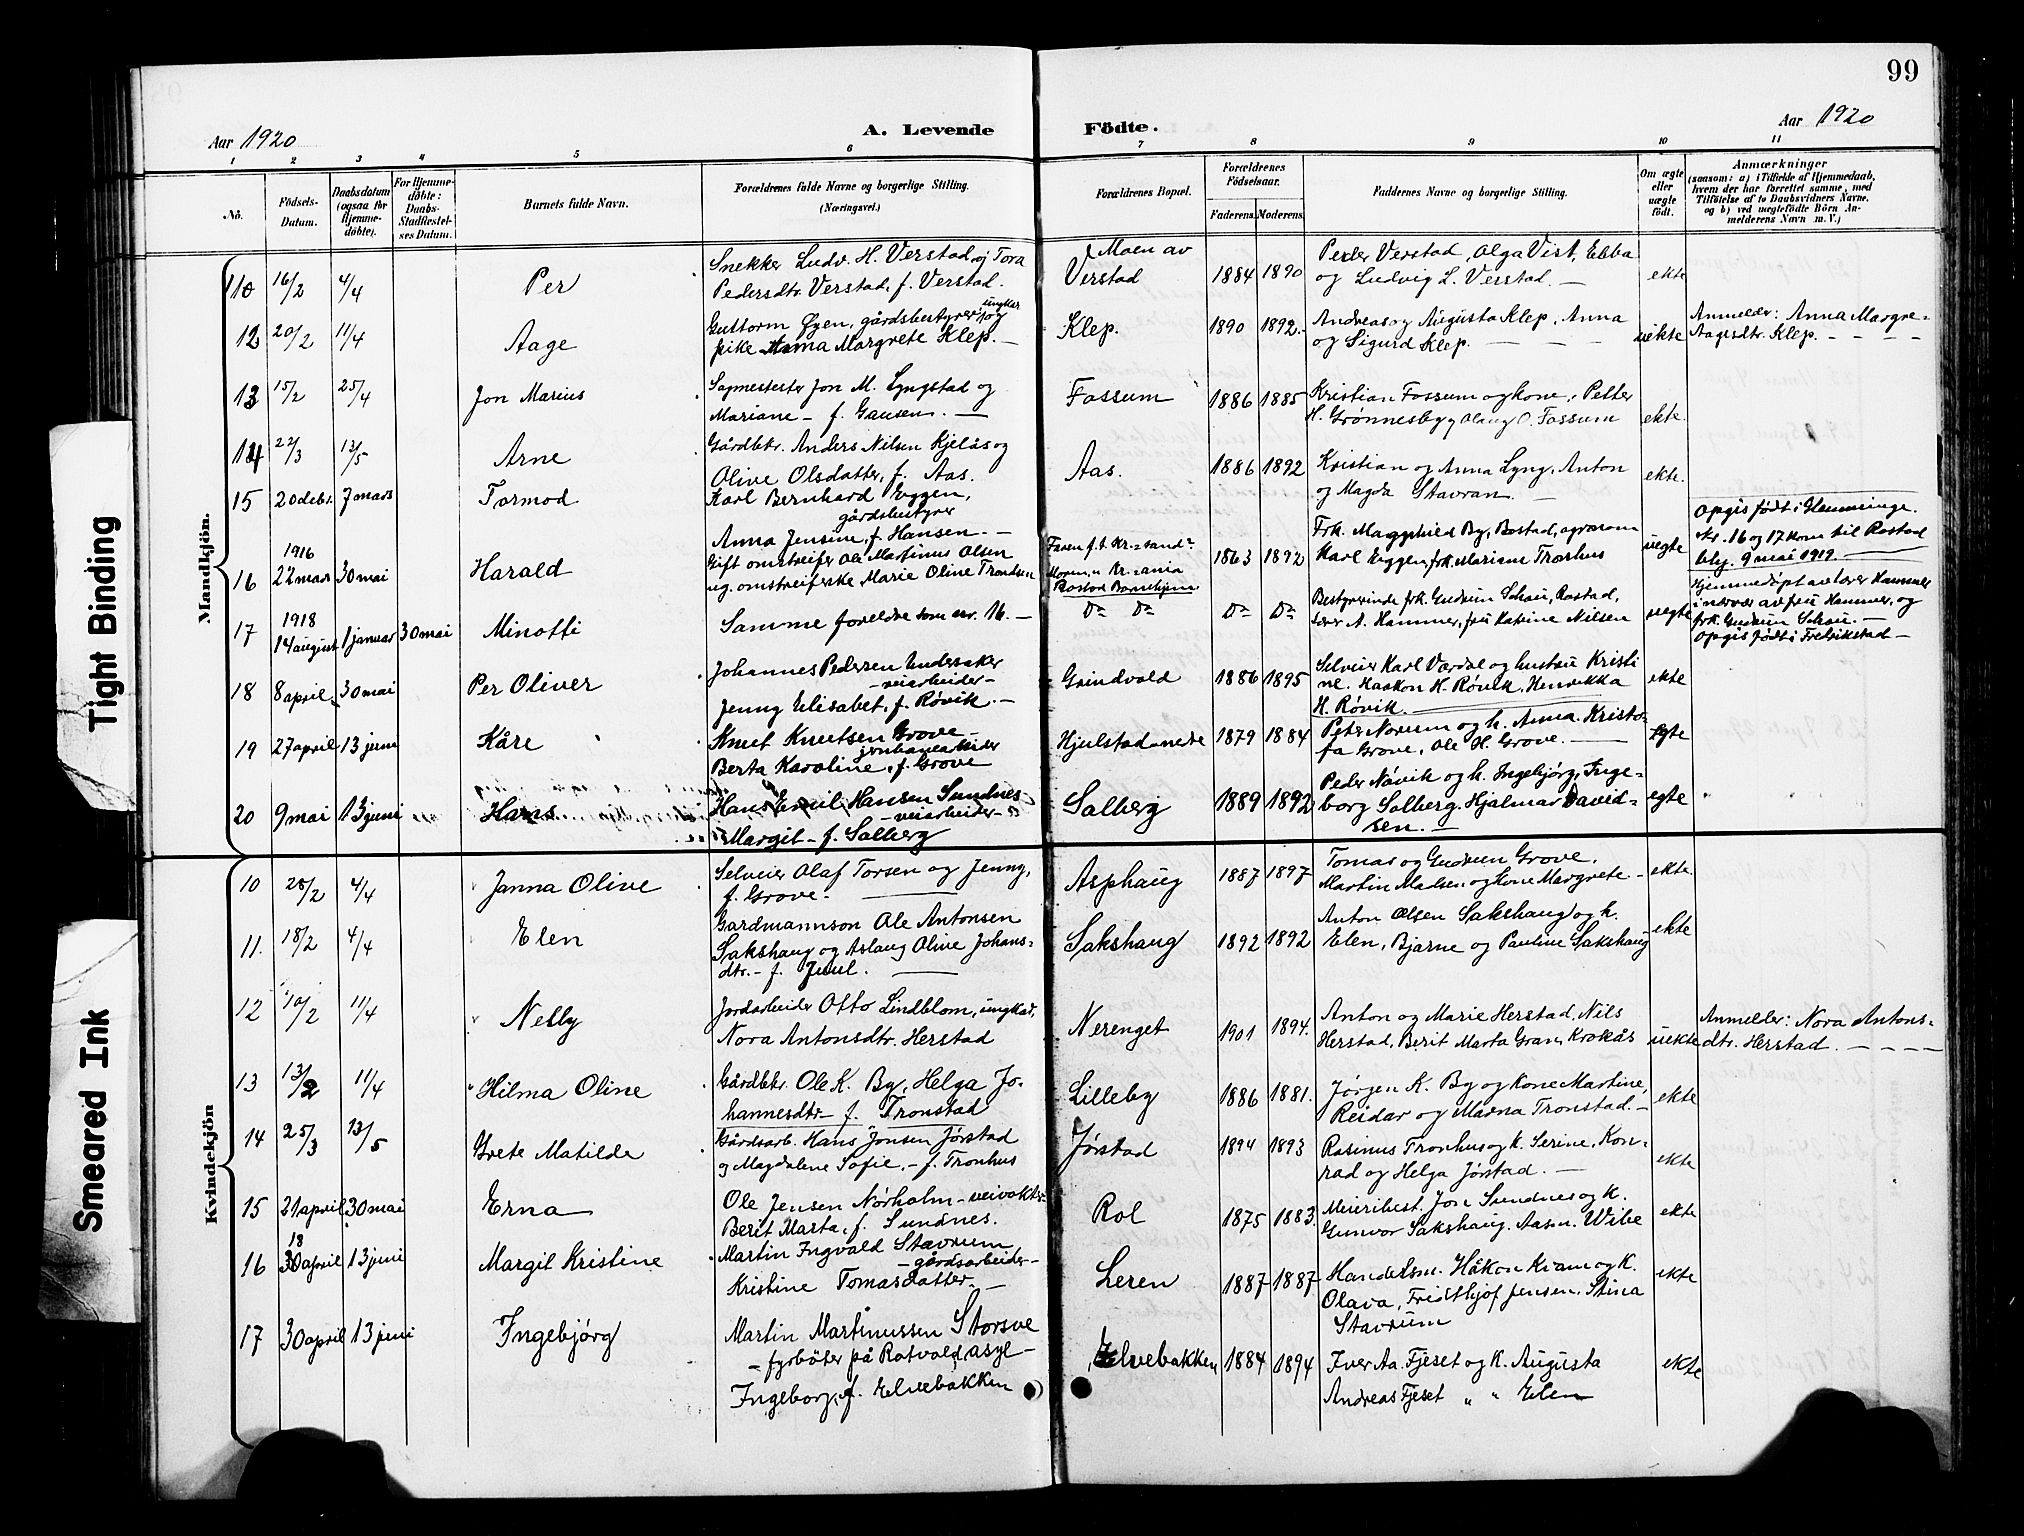 99
Aar 1920
A. Levende
Födte.
Aar 1920
1 2 3 4 5 6 7 8 9 10 11
Nö.
Födsels-Datum.
Daabsdatum (ogsaa for Hjemme-döbte).
For Hjemme-döbte: Daabs-Stadfæstel-ses Datum.
Barnets fulde Navn.
Forældrenes fulde Navne og borgerlige Stilling.
(Næringsvei.)
Forældrenes Bopæl.
Forældrenes Födselsaar.
Faderens. Moderens.
Faddernes Navne og borgerlige Stilling.
Om ægte eller uægte födt.
Anmærkninger
(saasom: a) i Tilfælde af Hjemmedaab,
hvem der har forrettet samme, med
Tilföielse af to Daabsvidners Navne,
og b) ved uægtefödte Börn An-
melderens Navn m. V.)
Mandkjön.
16/2 4/4 Per Snekker Ludv. H. Verstad og Tora
Pedersdtr. Verstad, f. Verstad.
Moen av
Verstad 1884 1890 Peder Verstad, Olga Vist, Ebba
og Ludvig L. Verstad. — ekte
12 20/2 11/4 Aage Guttorm Øyen, gårdsbestyrer, ungkar og
pike Anna Margrete Klep. —
Klep. 1890 1892. Andreas og Augusta Klep, Anna
og Sigurd Klep. — — — uekte Anmelder: Anna Margre-
Aagesdtr. Klep. — — — —
13 15/2 25/4 Jon Marius Sagmester Jon M. Lyngstad og
Mariane — f. Gausen. —
Fossum 1886 1885 Kristian Fossum og kone, Petter
H. Grønnesby og Olaug O. Fossum ekte.
14 22/3 13/5 Arne Gårdbtr. Anders Nilsen Kjelås og
Olive Olsdatter, f. Aas.
Aas. 1886 1892 Kristian og Anna Lyng, Anton
og Magda Stavran. — ekte.
15 20 debr. 7 mars Tormod Karl Bernhard Eggen,
gårdsbestyrer
Anna Jensine, f. Hansen. —
16 1916
22 mars 30 mai Harald Gift omstreifer Ole Martinus Olsen
ug. omstreiferske Marie Oline Trondsen
Faren f. t. Kr.-sand
Moren " Kr.-ania
Rostad Barnehjem 1863 1892 Frk. Magnhild By, Rostad,
Karl Eggen, frk. Mariann Tronhus uegte
Opgis født i Hemminge.
Nr. 16 og 17 kom til Rostad
bhj. 9 mai 1919. —
17 1918
14 august 1 januar 30 mai Minotti Samme foreldre som nr. 16. —
Do Do Do Do Bestyrerinde frk. Gudrun Schau, Rostad,
lærer A. Hammer, fru Katrine Nilsen uegte
Hjemmedøpt av lærer Hammer
i nærvær av fru Hammer, og
frk. Gudrun Schau. —
Opgis født i Fredrikstad —
18 8 april 30 mai Per Oliver Johannes Pedersen Undersaker
— veiarbeider —
Jenny Elisabet, f. Røvik. —
Grindvold 1886 1895 Selveier Karl Værdal og hustru Kristi-
ne. Haakon H. Røvik, Henrikka
H. Røvik. ekte
19 27 april 13 juni Kåre Knut Knutsen Grove —
jernbanearbeider
Berta Karoline, f. Grove
Hjulstad nedre 1879 1884 Peter Norum og h. Anna. Kristo-
fa Grove, Ole H. Grove. — egte
20 9 mai 13 juni Hans Hans Emil Hansen Sundnes
— veiarbeider —
Margit — f. Salberg
Salberg 1889 1892 Peder Røvik og h. Ingebjørg, Inge-
borg Salberg. Hjalmar David-
sen. — egte
Kvindekjön
10 28/2 4/4 Janna Olive Selveier Olaf Torsen og Jenny,
f. Grove. —
Asphaug 1887 1897 Tomas og Gudrun Grove,
Martin Madsen og kone Margrete — ekte.
11. 18/2 4/4 Elen Gardmannson Ole Antonsen
Sakshaug og Aslaug Olive Johans-
dtr. — f. Juul. —
Sakshaug 1892 1892 Anton Olsen Sakshaug og k.
Elen, Bjarne og Pauline Sakshaug ekte
12 10/2 11/4 Nelly Jordarbeider Otto Lindblom, ungkar,
Nora Antonsdtr. Herstad
Nerenget 1901 1894. Anton og Marie Herstad, Nils
Herstad, Berit Marta Gran, Krokås uekte Anmelder: Nora Antons-
dtr. Herstad. — — — —
13 13/2 11/4 Hilma Oline Gårdbtr. Ole K. By, Helga Jo-
hannesdtr — f. Tronstad
Lilleby 1886 1881. Jørgen K. By og kone Martine,
Reidar og Marna Tronstad. — ekte
14 25/3 13/5 Grete Matilde Gårdsarb. Hans Jonsen Jørstad
og Magdalene Sofie. — f. Tronhus
Jørstad 1894 1893 Rasinus Tronhus og k. Serine, Kon-
rad og Helga Jørstad. — ekte
15 21 april 30 mai Erna Ole Jensen Nørholm — veivokter
Berit Marta, f. Sundnes.
Rol 1875 1883. Meieribest. Jon Sundnes og k.
Gunvor Sakshaug. Aasm. Wibe ekte
16 18
30 april 13 juni Margit Kristine Martin Ingvald Stavrum
— gårdsarbeider —
Kristine Tomasdatter —
Leren 1887 1887 Handelsm. Håkon Kvam og k.
Olava, Fridthjof Jensen, Stina
Stavrum ekte
17 30 april 13 juni Ingebjørg Martin Martinussen Storsve
— fyrbøter på Rotvold asyl —
Ingeborg, f. Elvebakken
Elvebakken 1884 1894 Iver Aa. Fjeset og k. Augusta
Andreas Fjeset " " Elen ekte
Tight Binding
Smeared Ink